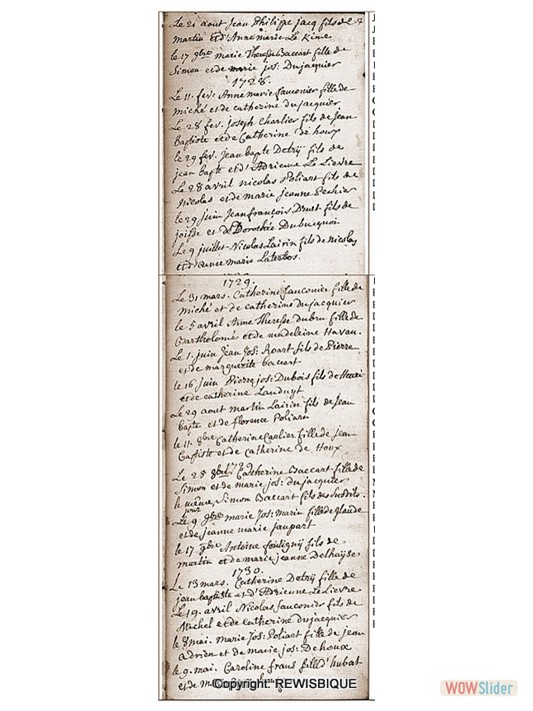 Le 21 aout Jean Philippe jacq fils de
Martin et d'Anne marie Le Kime
le 17 9bre marie Therese Baccart fille de
Simon et de marie jos: Dujacquier
1728.
Le 11. fev: Anne marie fauconier fille de
miché et de catherine dujacquier
Le 28 fev. joseph Charlier fils de Jean
Baptiste et de Catherine de houx
le 29 fev. Jean bapte Detry fils de
jean bapte et d'Adrienne Le Lievre
Le 28 avril nicolas Poliart fils de
Nicolas et de marie jeanne
le 29 juin Jean françois Druet fils de
et de Dorothée Dubucquoi
Le 9 juillet Nicolas Lairin fils de nicolas
et marie Laterbos.
1729.
Le 31 mars. Catherine fauconier fille de
miché et de catherine dujacquier
le 5 avril Anne Therese Dubru fille de
Bartholomé et de madeleine Havau.
Le 1. juin Jean Jos: Roart fils de Pierre
et de marguerite baccart
le 16 Juin Pierre jos: Dubois fils de Henri
et de catherine Landuyt
Le 29 aout martin Lairin fils de Jean
bapte et de florence Poliart
le 11. 8bre Catherine Carlier fille de Jean
Baptiste et de Catherine de Houx
Le 28 8bre 1729 Catherine Baccart fille de
Simon et de marie jos: dujacquier
le même jour Simon Baccart fils des susdits.
Le 9 9bre marie Jos: Marin fille de glaude
et de jeanne marie faupart
le 17 9bre Antoine fontigny fils de
martin et de marie jeanne Delhaÿse
1730.
Le 13 mars. Catherine Detry fille de
jean baptiste et d'Adrienne Le Lievre
Le 19. avril Nicolas fauconier fils de
Michel et de catherine dujacquier
le 8 mai. Marie Jos: Poliart fille de jean
Adrien et de marie jos: Dehoux
le 9. mai. Caroline frans fille d'hubat
et de
Copyright REWISBIQUE
WOWSlider